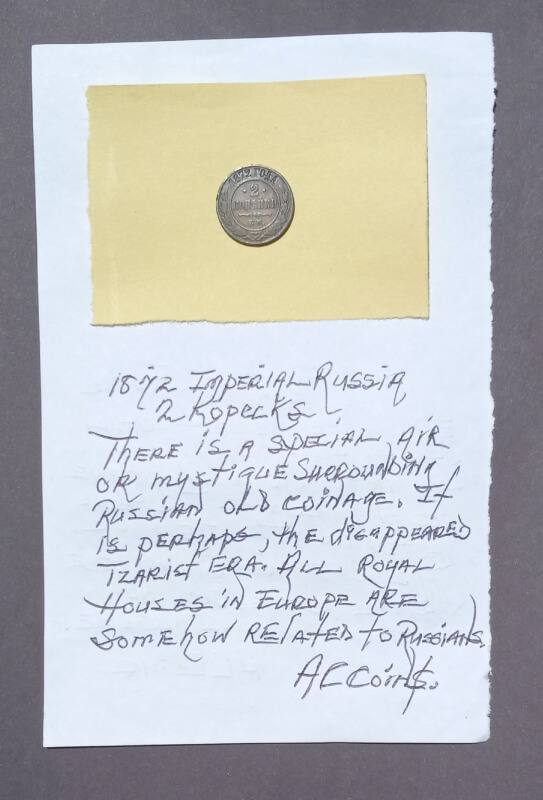 1872 ГОДА
2
КОПѢЙКИ
Е.М.
1872 Imperial Russia
2 Kopecks.
There is a special air
or mystique surrounding
Russian old coinage. It
is perhaps, the disappeared
Tzarist era. All royal
houses in Europe are
somehow related to Russians.
AC Coins.